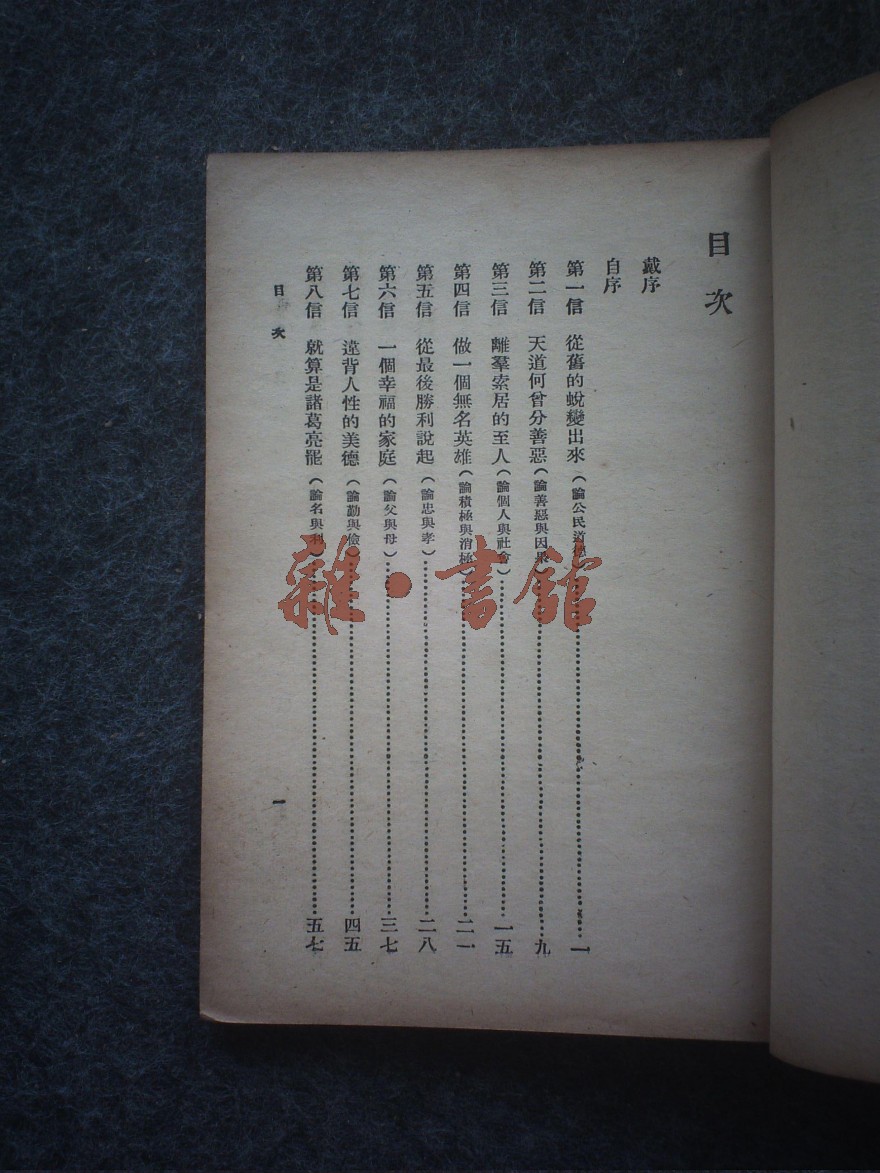 目次
戴序
自序
第一信 從舊的蛻變出來(論公民道德)⋯⋯一
第二信 天道何曾分善惡(論善惡與因果)⋯⋯九
第三信 離羣索居的至人(論個人與社會)⋯⋯一五
第四信 做一個無名英雄(論積極與消極)⋯⋯二一
第五信 從最後勝利說起(論忠與孝)⋯⋯二八
第六信 一個幸福的家庭(論父與母)⋯⋯三七
第七信 違背人性的美德(論勤與儉)⋯⋯四五
第八信 就算是諸葛亮罷(論名與利)⋯⋯五七
目次 一
雜·書館